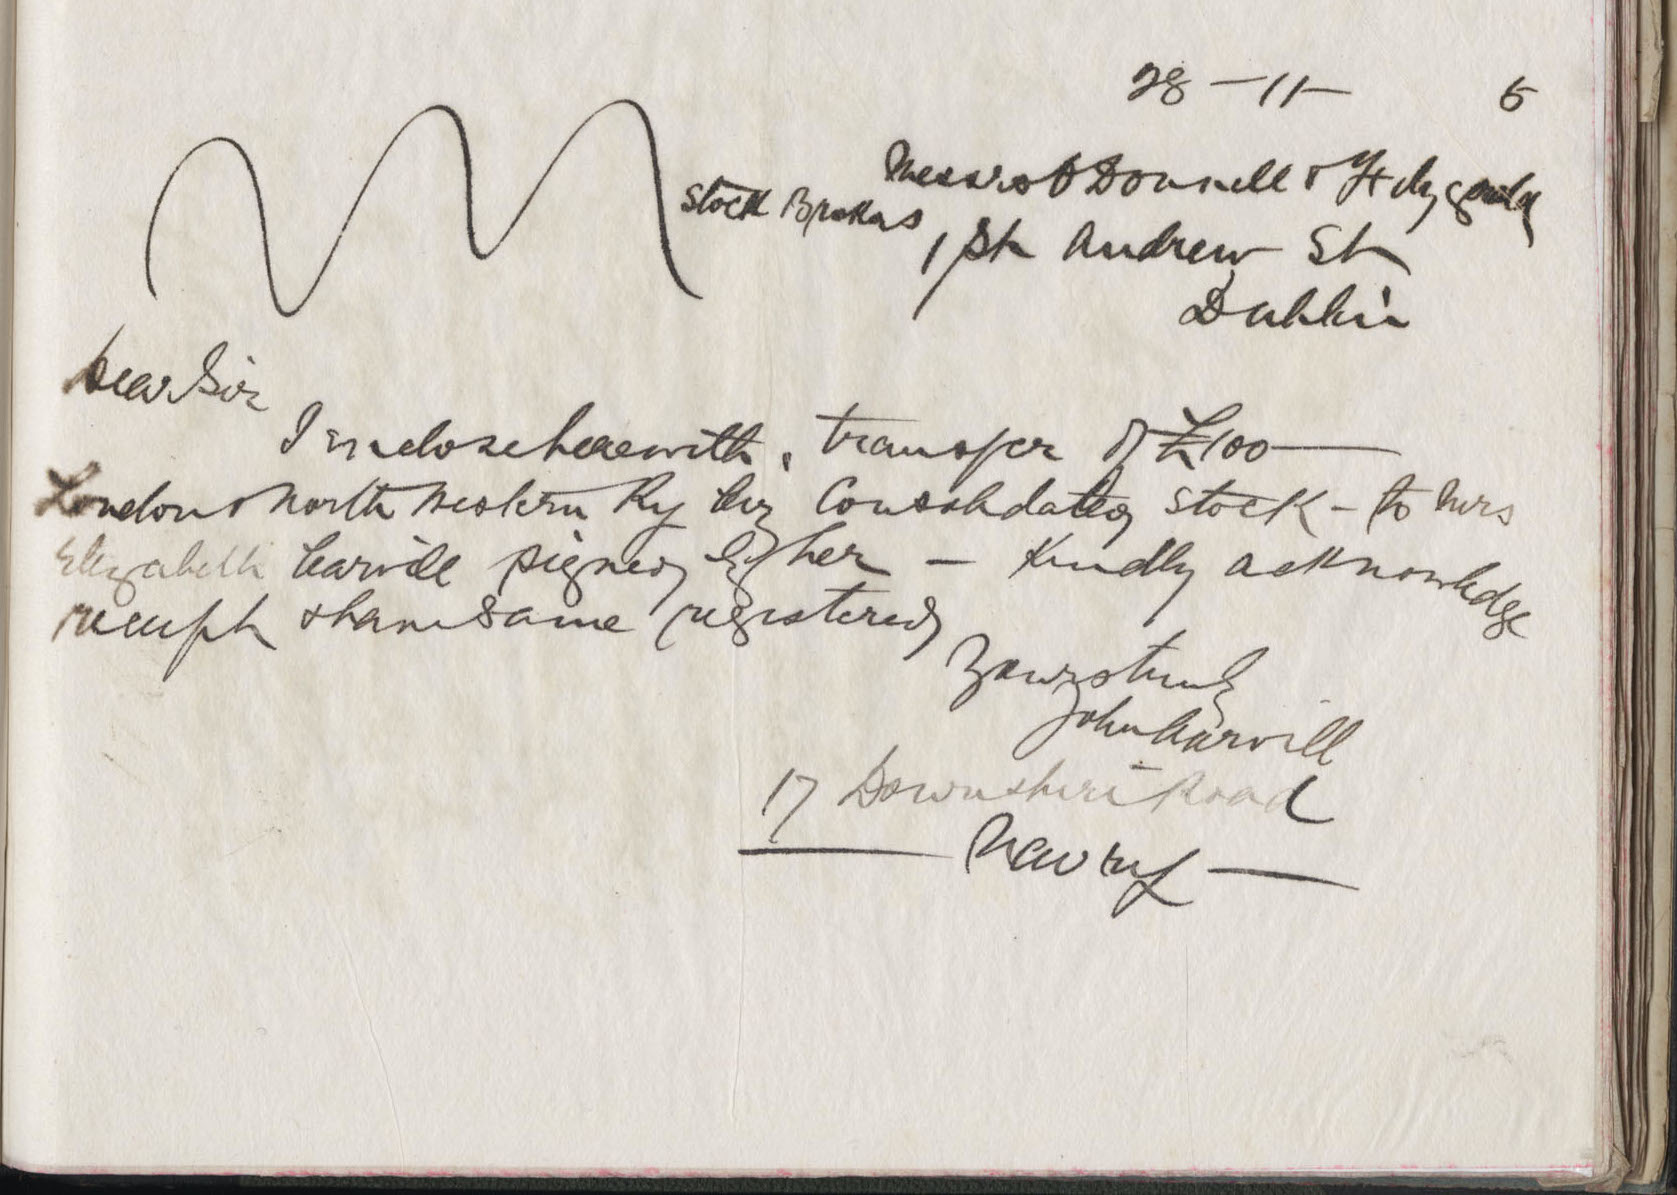 28 - 11 - 5
Messrs O Donnell & Fitzgerald
Stock Brokers
1 St Andrew St
Dublin
Dear Sir
I enclose herewith, transfer of £100 —
London & North Western Ry Coy Consolidated Stock - to Mrs
Elizabeth Carvill signed by her - Kindly acknowledge
receipt & have same registered
Yours truly
John Carvill
17 Downshire Road
Newry